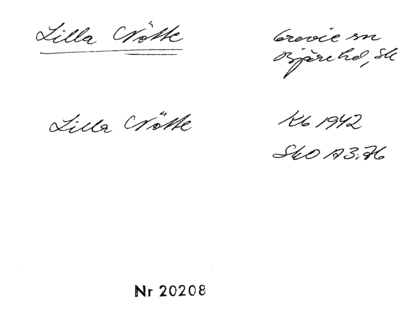 Lilla Nötte
Grevie sn
Bjäre hd, Sk
Lilla Nötte
Kb 1942
SkO A3:76
Nr 20208